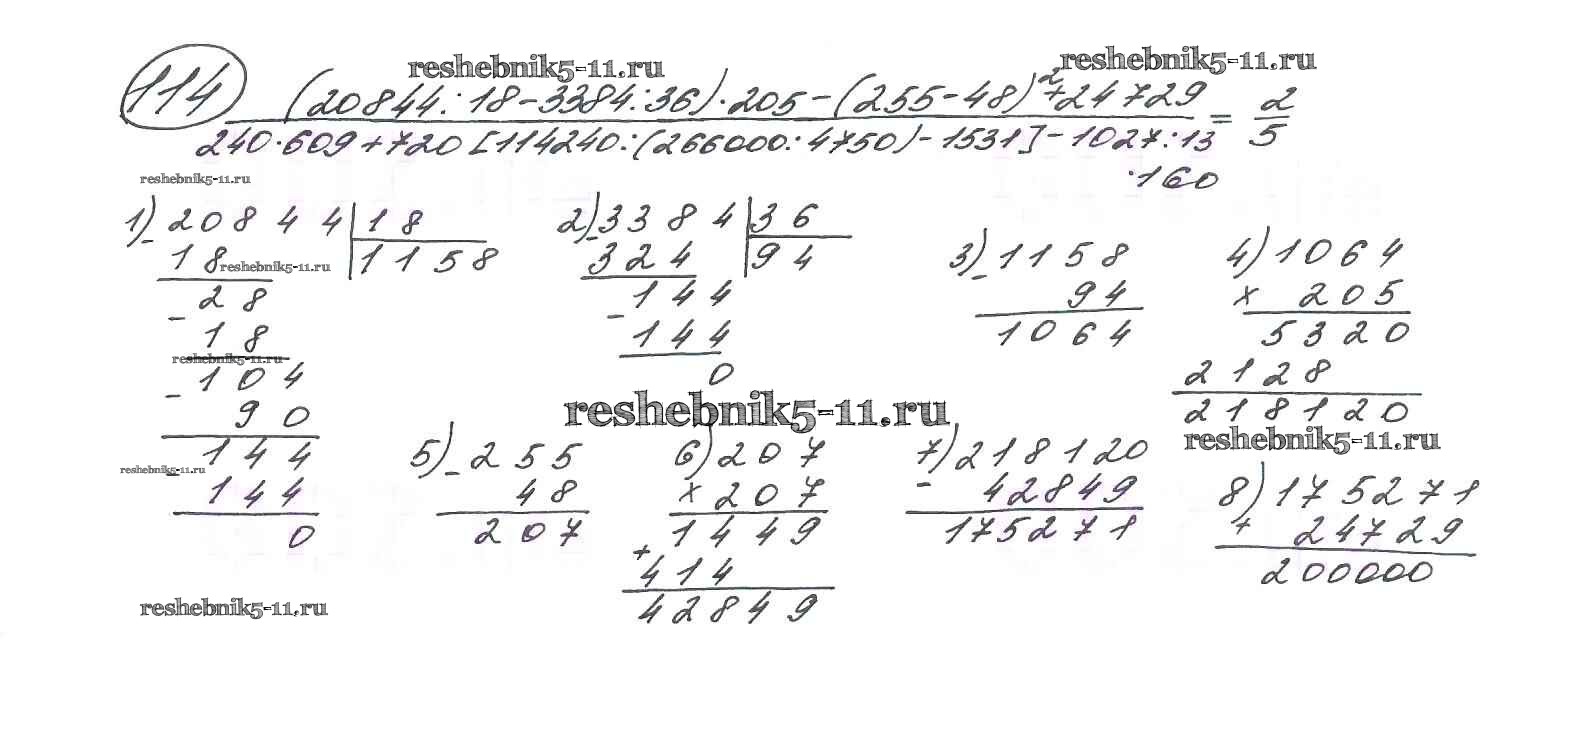 reshebnik5-11.ru reshebnik5-11.ru
114 (20844:18-3384:36)·205-(255-48)²+24729
240·609+720[114240:(266000:4750)-1531]-1027:13 = 2/5
·160
reshebnik5-11.ru
1) 20844 | 18
- 18 | 1158
reshebnik5-11.ru
28
- 18
reshebnik5-11.ru
104
- 90
144
reshebnik5-11.ru
- 144
0
2) 3384 | 36
- 324 | 94
144
- 144
0
3) 1158
- 94
1064
4) 1064
x 205
5320
2128
218120
reshebnik5-11.ru
reshebnik5-11.ru
5) 255
- 48
207
6) 207
x 207
1449
+ 414
42849
7) 218120
- 42849
175271
8) 175271
+ 24729
200000
reshebnik5-11.ru